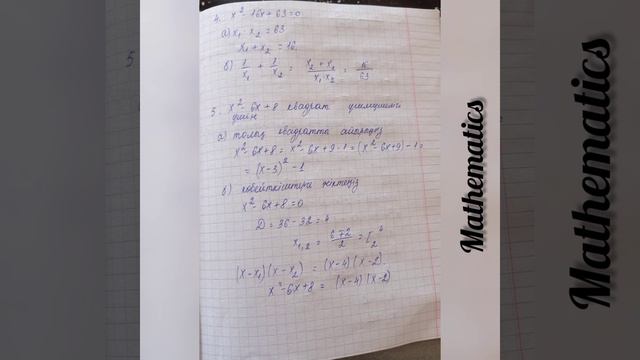 4. x² - 16x + 63 = 0
a) x₁ · x₂ = 63
x₁ + x₂ = 16.
б) 1/x₁ + 1/x₂ = (x₂ + x₁)/(x₁ · x₂) = 16/63
5. x² - 6x + 8 квадрат үшмүшелігі
үшін
a) толық квадратты айырыңыз
x² - 6x + 8 = x² - 6x + 9 - 1 = (x² - 6x + 9) - 1 =
= (x - 3)² - 1
б) көбейткіштерге жіктеңіз
x² - 6x + 8 = 0
D = 36 - 32 = 4
x₁,₂ = (6 ∓ 2)/2 = [ 4 2
(x - x₁)(x - x₂) = (x - 4)(x - 2).
x² - 6x + 8 = (x - 4)(x - 2)
Mathematics